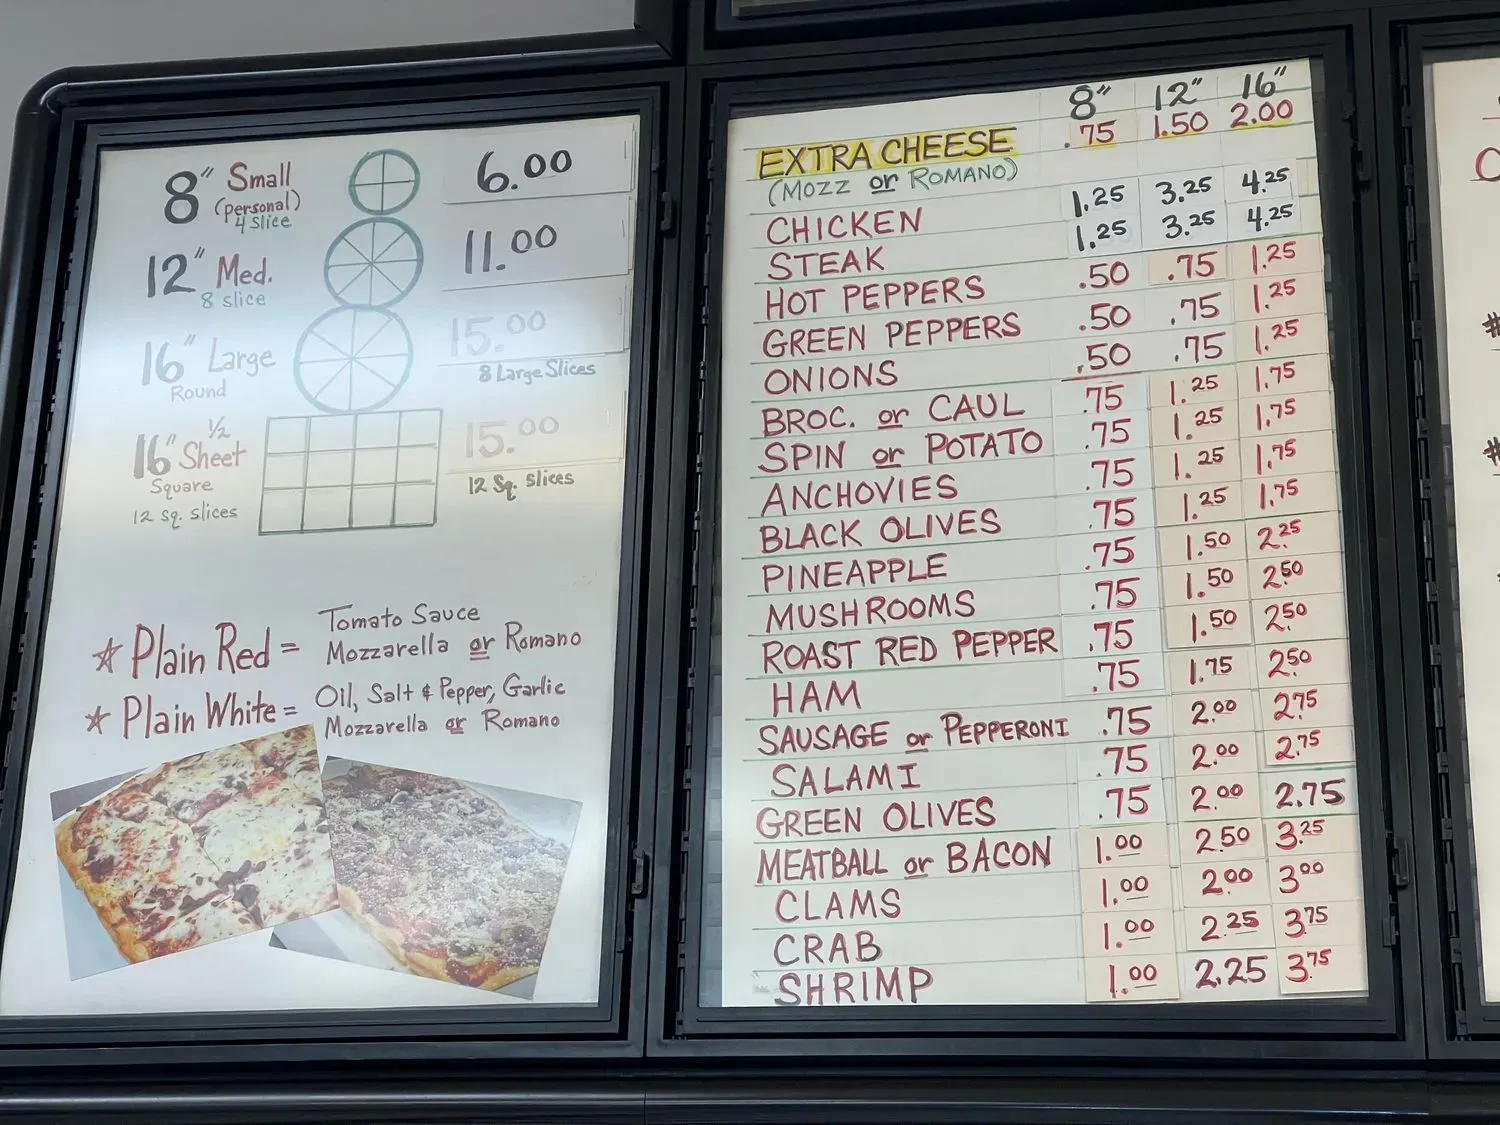 8" Small 6.00
(personal)
4 slice
12" Med. 11.00
8 slice
16" Large 15.00
Round 8 Large Slices
16" 1/2 Sheet 15.00
Square 12 Sq. slices
12 sq. slices
☆ Plain Red = Tomato Sauce
Mozzarella or Romano
☆ Plain White = Oil, Salt & Pepper, Garlic
Mozzarella or Romano
8" 12" 16"
EXTRA CHEESE .75 1.50 2.00
(MOZZ or ROMANO)
CHICKEN 1.25 3.25 4.25
STEAK 1.25 3.25 4.25
HOT PEPPERS .50 .75 1.25
GREEN PEPPERS .50 .75 1.25
ONIONS .50 .75 1.25
BROC. or CAUL .75 1.25 1.75
SPIN or POTATO .75 1.25 1.75
ANCHOVIES .75 1.25 1.75
BLACK OLIVES .75 1.25 1.75
PINEAPPLE .75 1.50 2.25
MUSHROOMS .75 1.50 2.50
ROAST RED PEPPER .75 1.50 2.50
HAM .75 1.75 2.50
SAUSAGE or PEPPERONI .75 2.00 2.75
SALAMI .75 2.00 2.75
GREEN OLIVES .75 2.00 2.75
MEATBALL or BACON 1.00 2.50 3.25
CLAMS 1.00 2.00 3.00
CRAB 1.00 2.25 3.75
SHRIMP 1.00 2.25 3.75